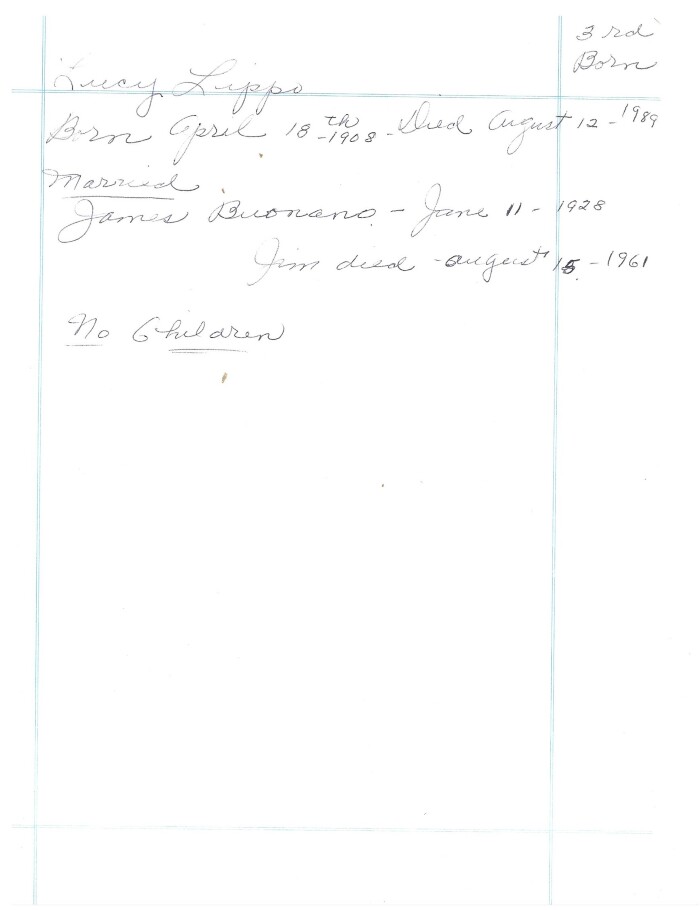 3rd
Born
Lucy Lippo
Born April 18th -1908 - Died August 12 - 1989
Married
James Buonano - June 11 - 1928
Jim died - august 15 - 1961
No Children